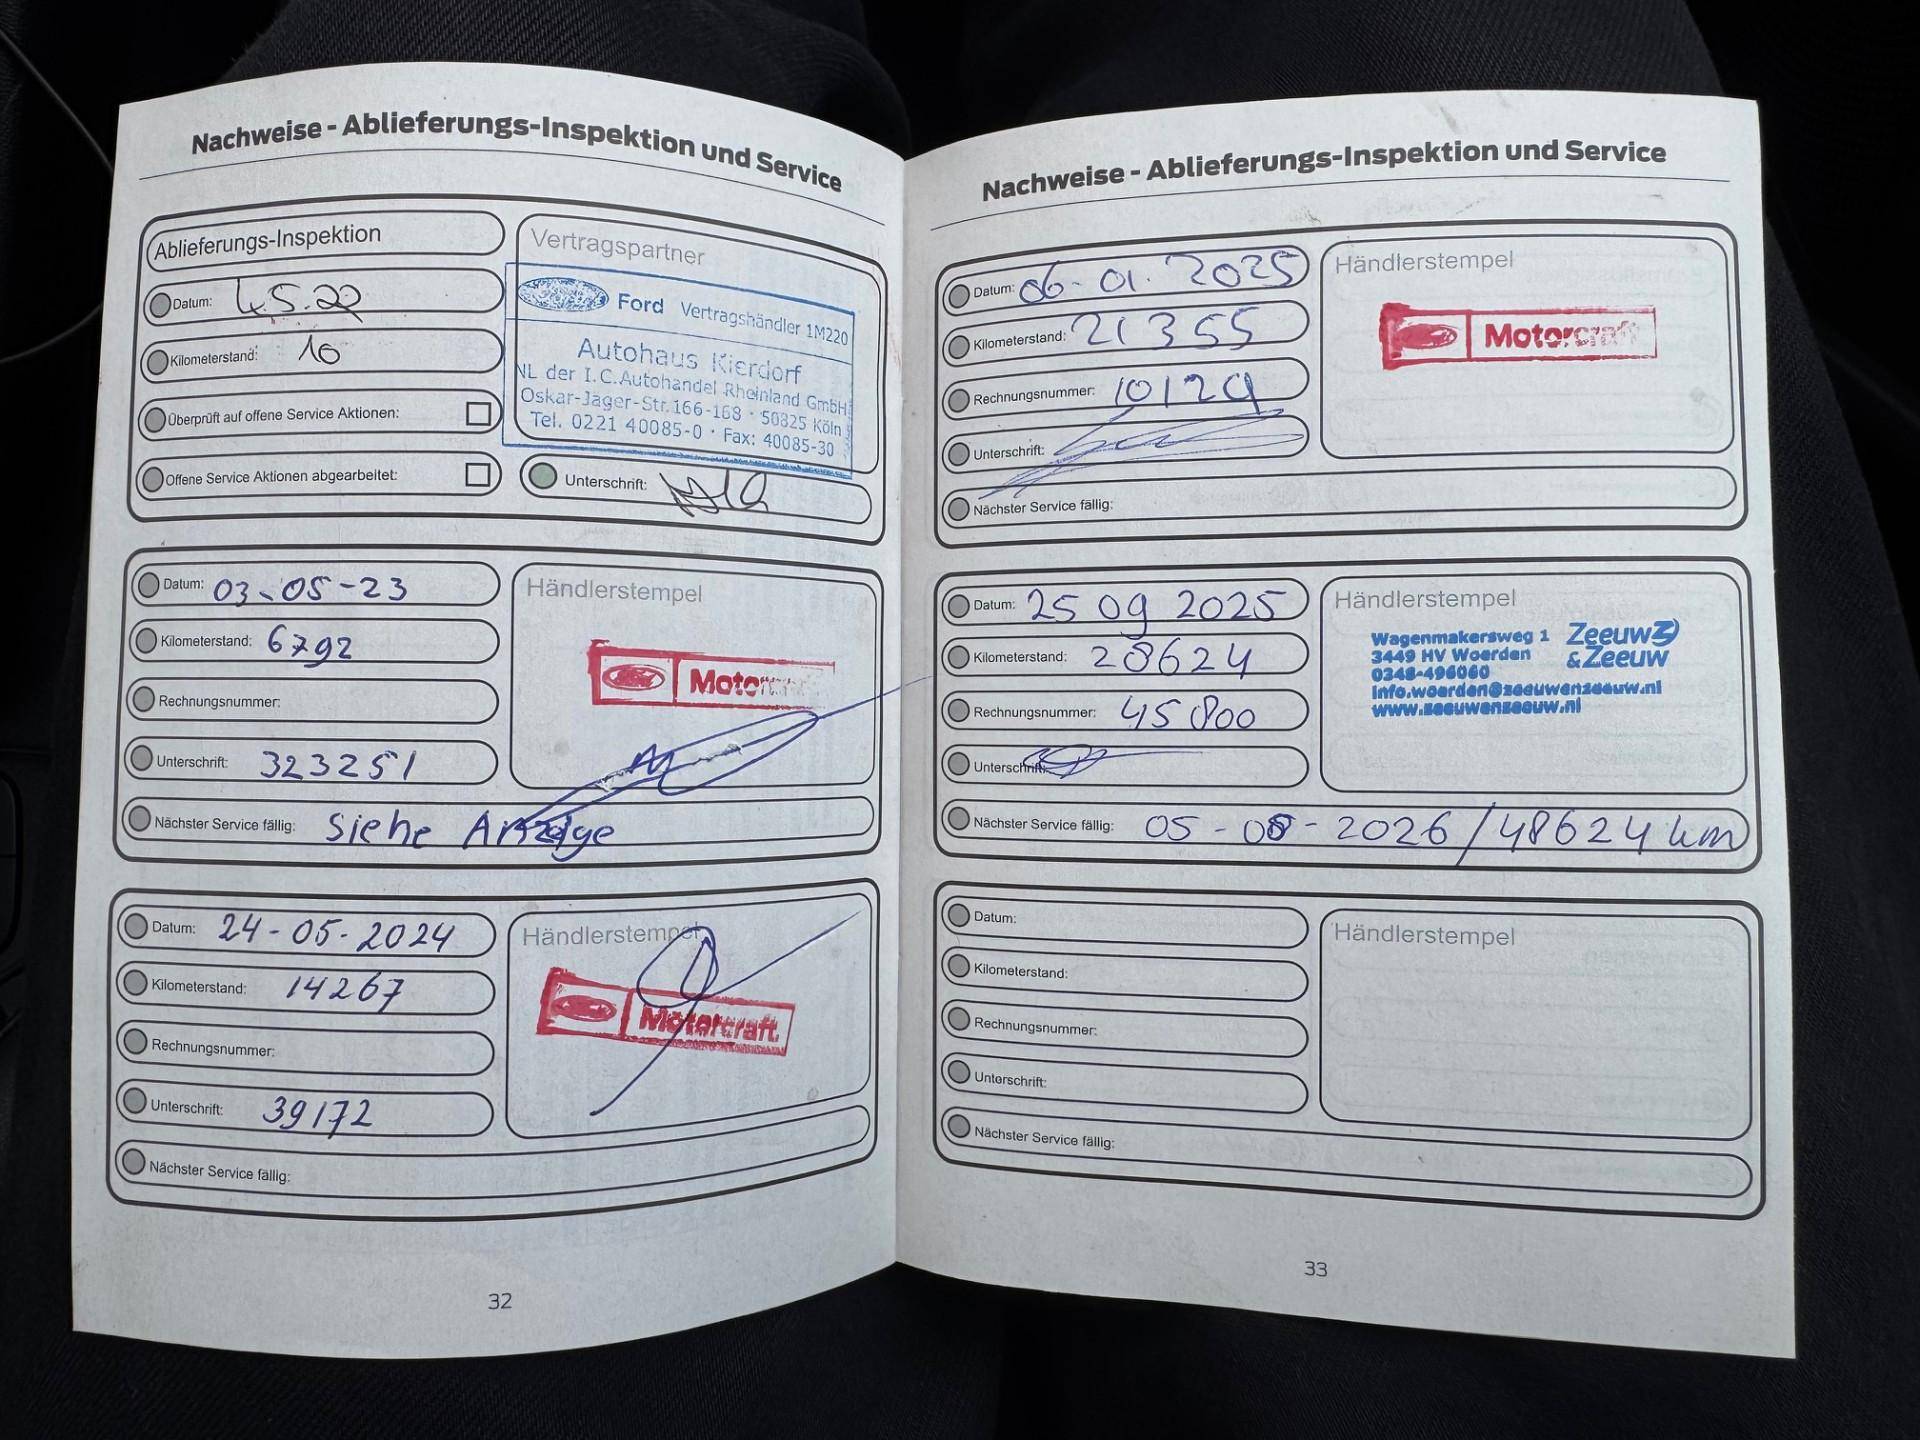 Nachweise - Ablieferungs-Inspektion und Service
Ablieferungs-Inspektion
Datum: 4.5.22
Kilometerstand: 10
Überprüft auf offene Service Aktionen:
Offene Service Aktionen abgearbeitet:
Vertragspartner
Ford Vertragshändler 1M220
Autohaus Kierdorf
NL der I.C.Autohandel Rheinland GmbH
Oskar-Jäger-Str.166-168 · 50825 Köln
Tel. 0221 40085-0 · Fax: 40085-30
Unterschrift:
Datum: 03-05-23
Kilometerstand: 6792
Rechnungsnummer:
Unterschrift: 323251
Nächster Service fällig: Siehe Anzeige
Händlerstempel
Datum: 24-05-2024
Kilometerstand: 14267
Rechnungsnummer:
Unterschrift: 39172
Nächster Service fällig:
Händlerstempel
Motorcraft
32
Nachweise - Ablieferungs-Inspektion und Service
Datum: 06-01.2025
Kilometerstand: 21355
Rechnungsnummer:
Unterschrift:
Nächster Service fällig:
Händlerstempel
Motorcraft
Datum: 25 09 2025
Kilometerstand: 28624
Rechnungsnummer: 45800
Unterschrift:
Nächster Service fällig: 05 - 05 - 2026 / 48624 km
Händlerstempel
Wagenmakersweg 1
3449 HV Woerden
0348-496060
info.woerden@zeeuwenzeeuw.nl
www.zeeuwenzeeuw.nl
Zeeuw
& Zeeuw
Datum:
Kilometerstand:
Rechnungsnummer:
Unterschrift:
Nächster Service fällig:
Händlerstempel
33